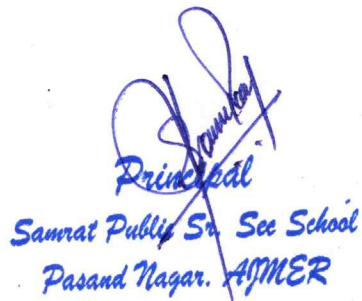 Principal
Samrat Public Sr. Sec School
Pasand Nagar. AJMER